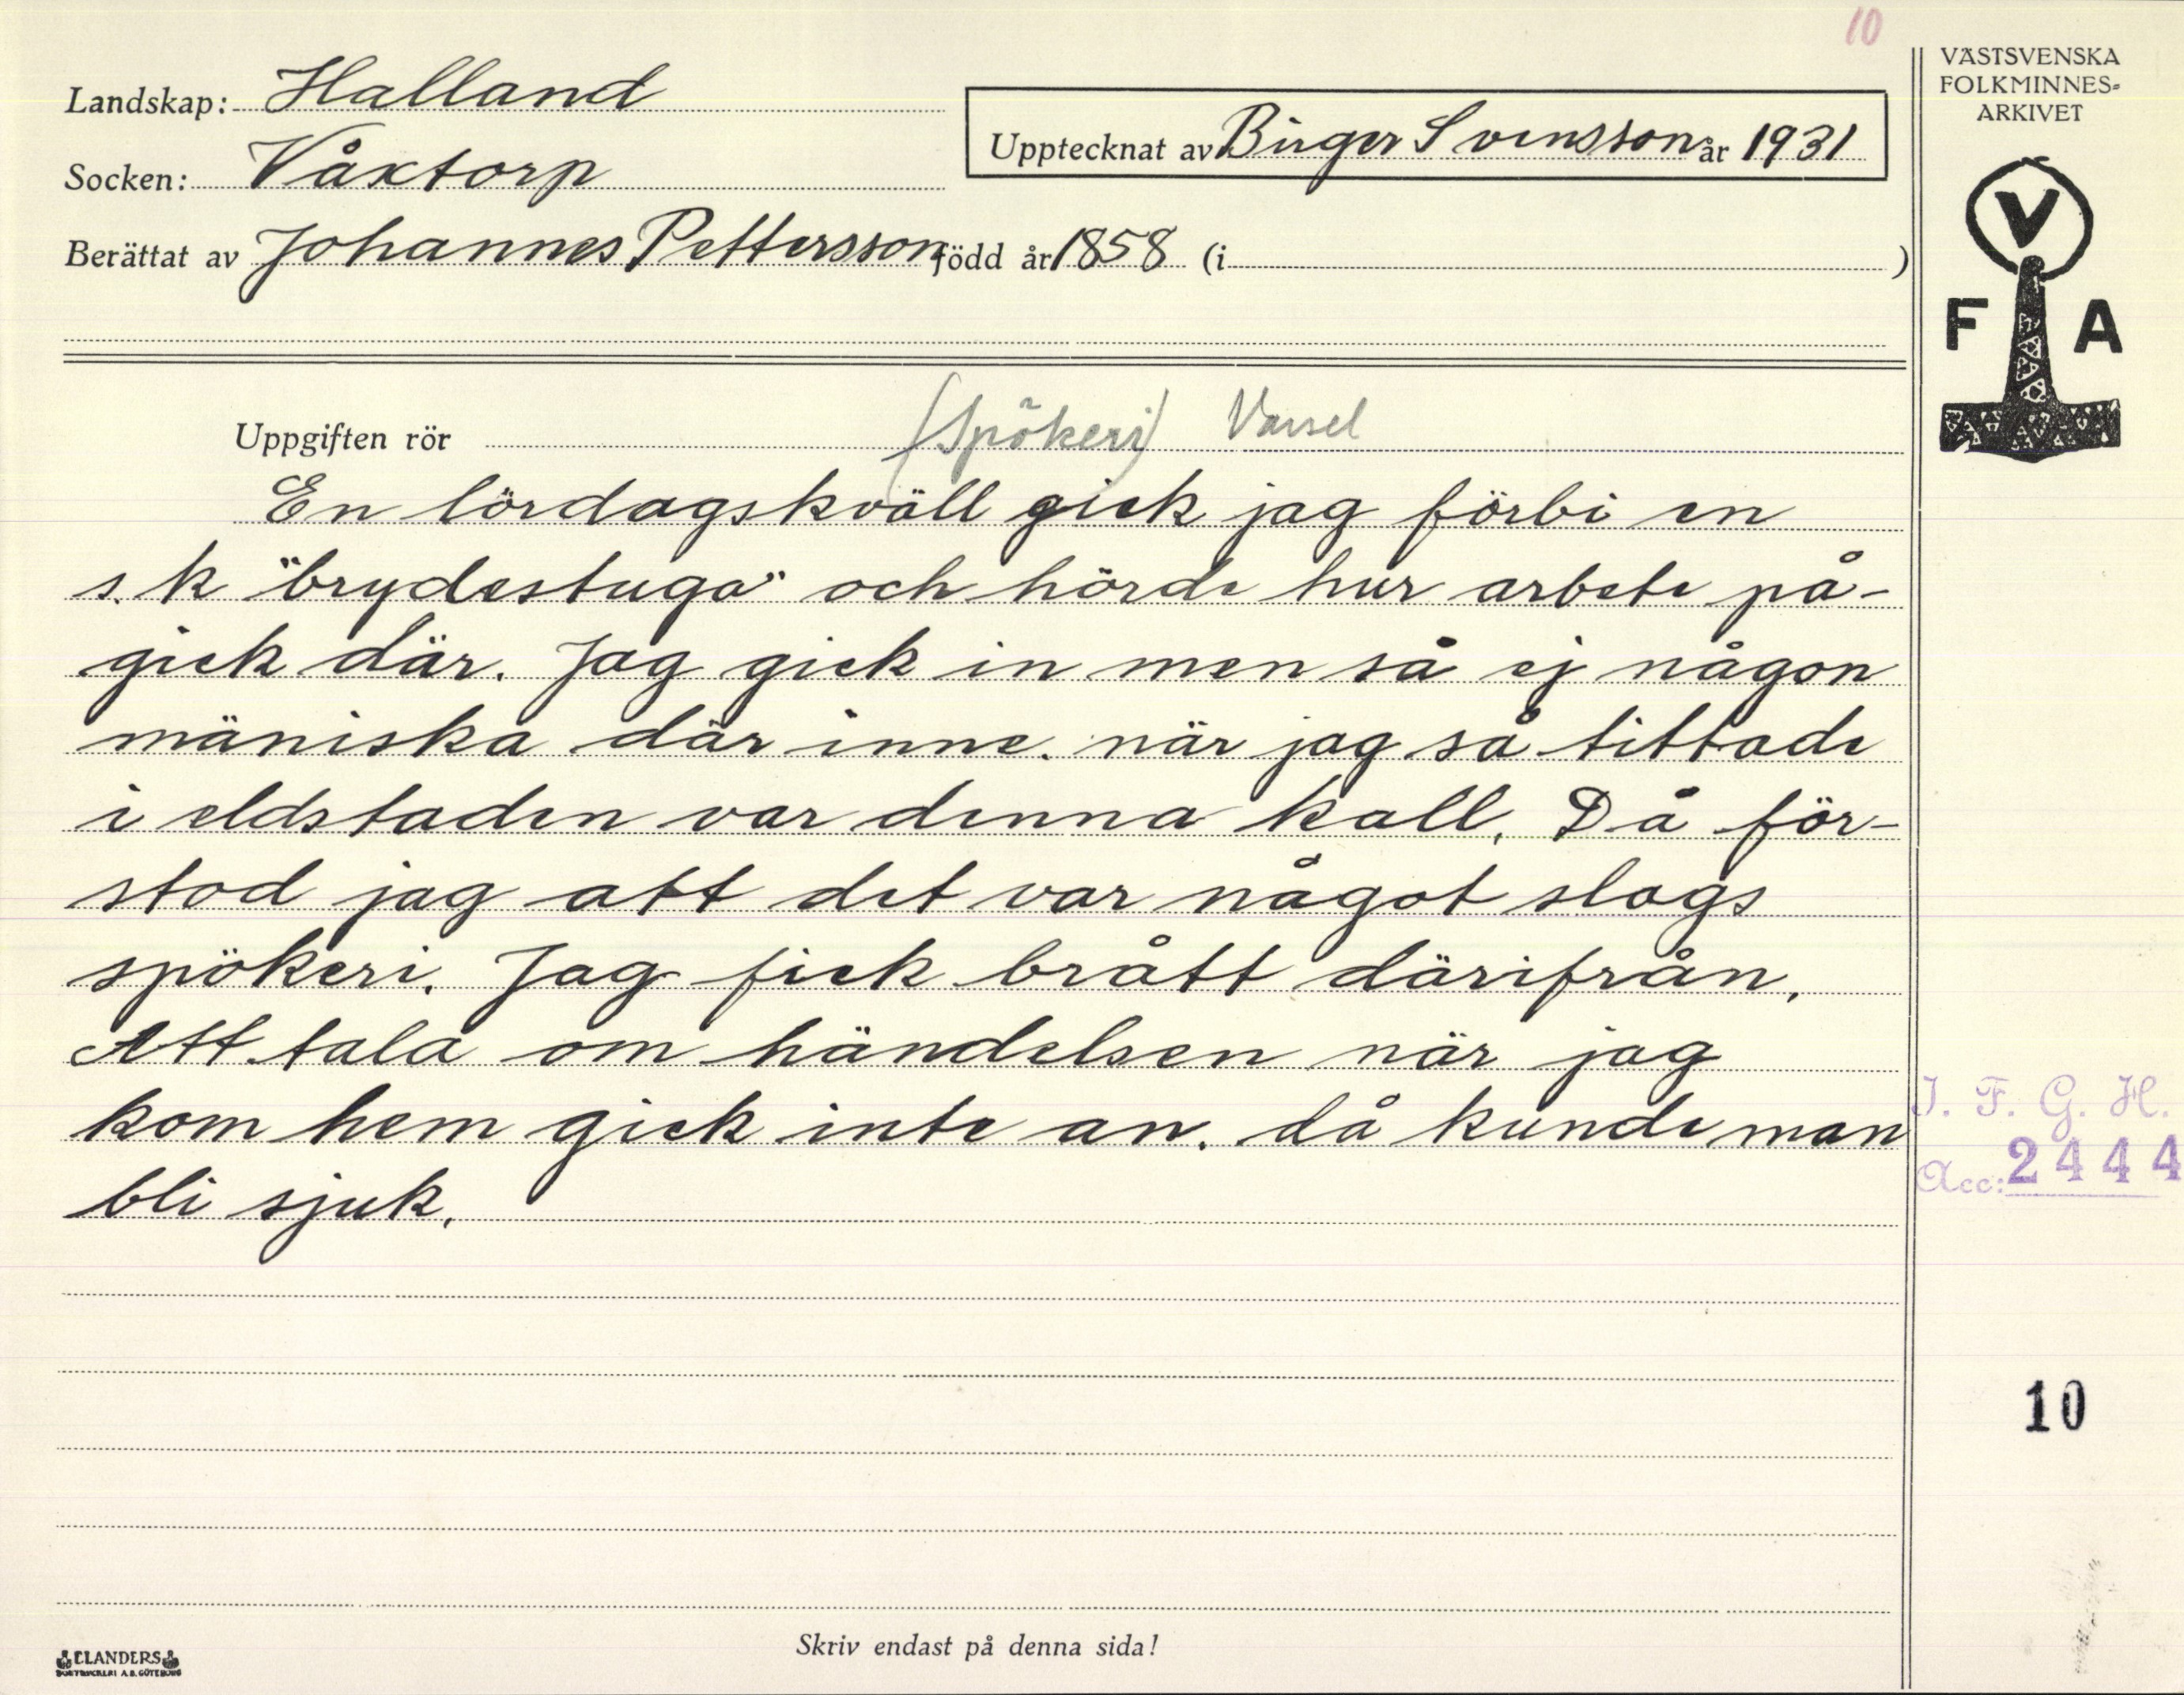 10
VÄSTSVENSKA
FOLKMINNES-
ARKIVET
Landskap: Halland
Upptecknat av Birger Svensson år 1931
Socken: Våxtorp
Berättat av Johannes Pettersson född år 1858 (i )
V
F A
Uppgiften rör (Spökeri) Varsel
En lördagskväll gick jag förbi en
s.k "brydestuga" och hörde hur arbete på-
gick där. Jag gick in men så ej någon
mäniska där inne. när jag så tittade
i eldstaden var denna kall. Då för-
stod jag att det var något slags
spökeri. Jag fick brått därifrån.
Att tala om händelsen när jag
kom hem gick inte an. då kunde man
bli sjuk.
I. F. G. H.
Acc: 2444
10
Skriv endast på denna sida!
ELANDERS
BOKTRYCKERI A.B. GÖTEBORG